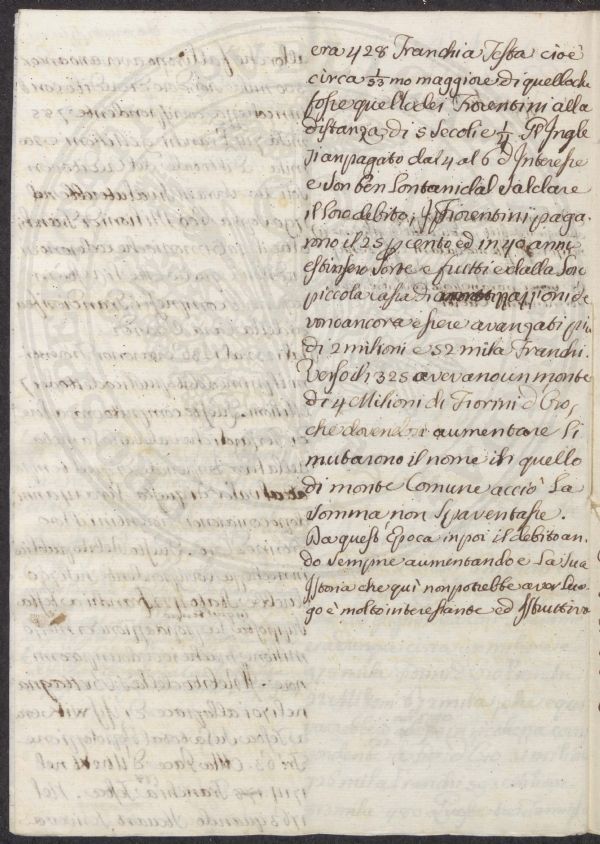 era 428 Franchi a Testa cioè
circa 1/33 mo maggiore di quello che
fosse quello dei Fiorentini alla
distanza di 5 Secoli e 1/2. Gl'Ingle
si an pagato dal 4 al 6 d'Interesse
e son ben lontani dal saldare
il loro debito; I Fiorentini paga-
rono il 25 p cento ed in 40 anni
estinsero sorte e frutti e dalla lor
piccola cassa di
vono ancora essere avanzati più
di 2 milioni e 52 mila Franchi.
Verso il 1325 avevano un monte
di 4 Milioni di Fiorini d'Oro,
che dovendosi aumentare li
mutarono il nome in quello
di monte Comune acciò la
somma non spaventasse.
Da quest'Epoca in poi il debito an-
dò sempre aumentando e la sua
Istoria che quì non potrebbe aver luo-
go è molto interessante ed Istruttiva